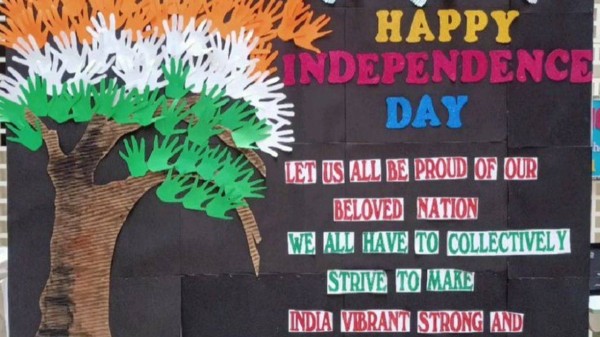 HAPPY
INDEPENDENCE
DAY
LET US ALL BE PROUD OF OUR
BELOVED NATION
WE ALL HAVE TO COLLECTIVELY
STRIVE TO MAKE
INDIA VIBRANT STRONG AND